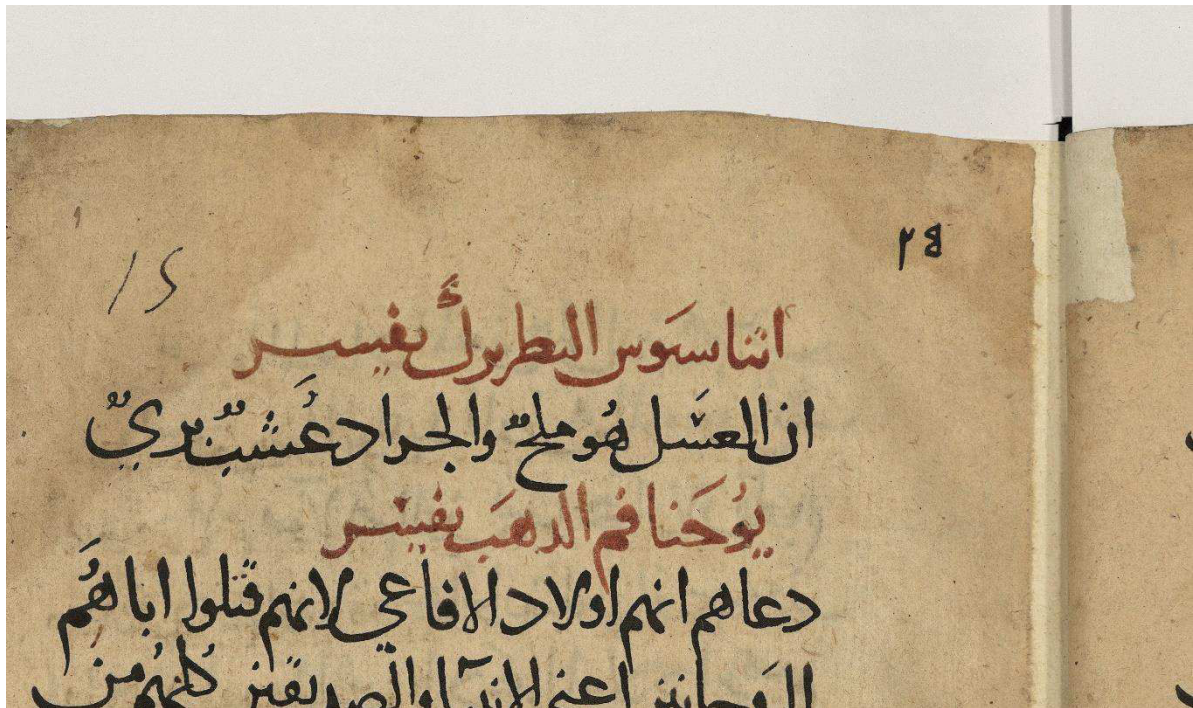 ٢٤
15
اثناسَوس البطريرك يفيسر
ان العسَل هُو ملحٌ والجراد عُشبٌ بريٌ
يُوحَنا فم الدهَب يفيسر
دعاهم انهم اولاد الافاعي لانهم قتلوا اباهُم
الروحانين اعني الانبيآ والصديقين كلهُم من